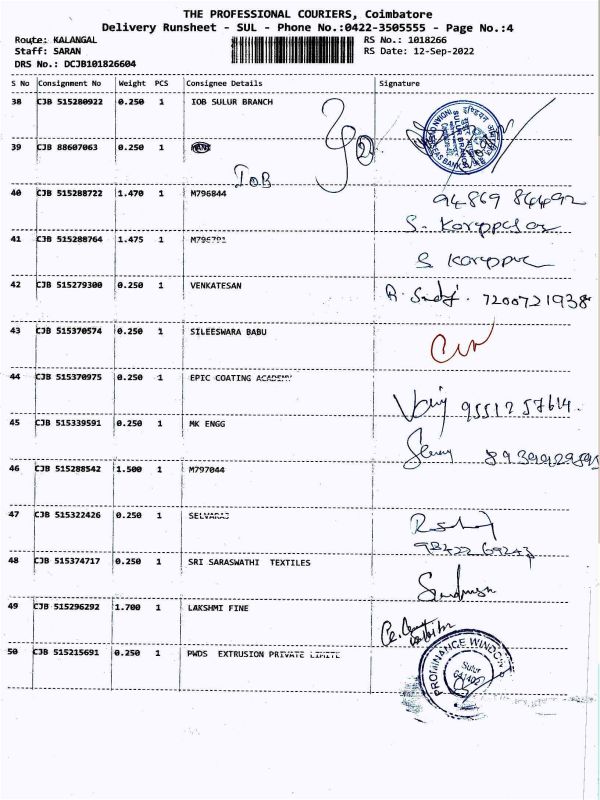 THE PROFESSIONAL COURIERS, Coimbatore
Delivery Runsheet - SUL - Phone No.:0422-3505555 - Page No.:4
Route: KALANGAL
RS No.: 1018266
Staff: SARAN
RS Date: 12-Sep-2022
DRS No.: DCJB101826604
S No Consignment No Weight PCS Consignee Details Signature
38 CJB 515280922 0.250 1 IOB SULUR BRANCH
39 CJB 88607063 0.250 1
IOB
40 CJB 515288722 1.470 1 M796844
41 CJB 515288764 1.475 1
42 CJB 515279300 0.250 1 VENKATESAN 7200721938
43 CJB 515370574 0.250 1 SILEESWARA BABU
44 CJB 515370975 0.250 1 EPIC COATING ACADEMY
9551257614.
45 CJB 515339591 0.250 1 MK ENGG
46 CJB 515288542 1.500 1 M797044
47 CJB 515322426 0.250 1 SELVARAJ
48 CJB 515374717 0.250 1 SRI SARASWATHI TEXTILES
49 CJB 515296292 1.700 1 LAKSHMI FINE
50 CJB 515215691 0.250 1 PWDS EXTRUSION PRIVATE LIMITE
PROMINANCE WINDOW
Sulur